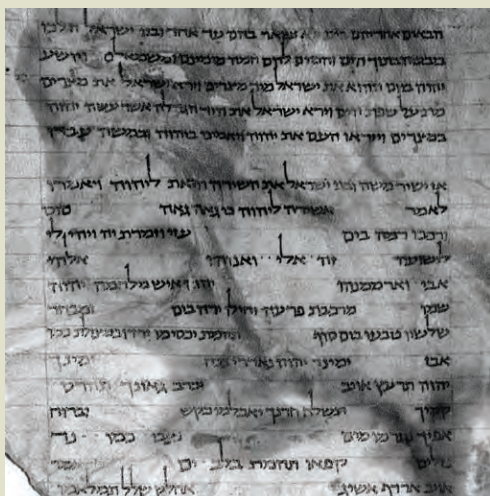 הבאים אחריהם בים לא נשאר בהם עד אחד ובני ישראל הלכו
ביבשה בתוך הים והמים להם חמה מימינם ומשמאלם ויושע
יהוה ביום ההוא את ישראל מיד מצרים וירא ישראל את מצרים
מת על שפת הים וירא ישראל את היד הגדלה אשר עשה יהוה
במצרים וייראו העם את יהוה ויאמינו ביהוה ובמשה עבדו
אז ישיר משה ובני ישראל את השירה הזאת ליהוה ויאמרו
לאמר אשירה ליהוה כי גאה גאה סוס
ורכבו רמה בים עזי וזמרת יה ויהי לי
לישועה זה אלי ואנוהו אלהי
אבי וארממנהו יהוה איש מלחמה יהוה
שמו מרכבת פרעה וחילו ירה בים ומבחר
שלישיו טבעו בים סוף תהמת יכסימו ירדו במצולת כמו
אבן ימינך יהוה נאדרי בכח ימינך
יהוה תרעץ אויב וברב גאונך תהרס
קמיך תשלח חרנך יאכלמו כקש וברוח
אפיך נערמו מים נצבו כמו נד
נזלים קפאו תהמת בלב ים אמר
אויב ארדף אשיג אחלק שלל תמלאמו